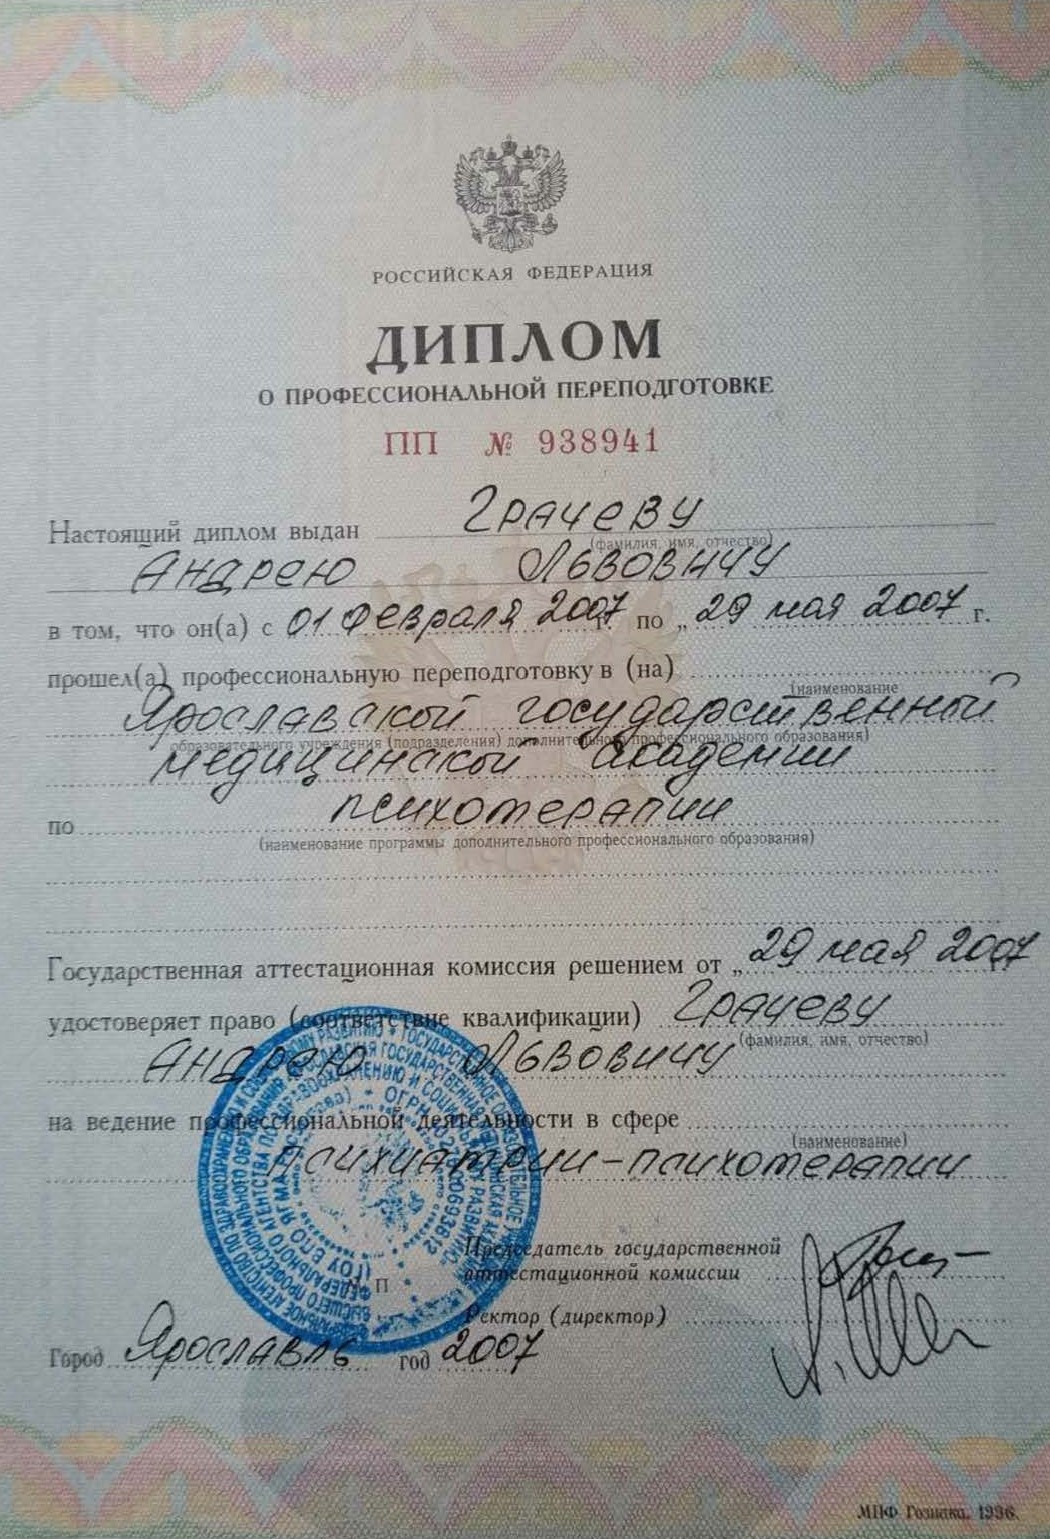 РОССИЙСКАЯ ФЕДЕРАЦИЯ
ДИПЛОМ
О ПРОФЕССИОНАЛЬНОЙ ПЕРЕПОДГОТОВКЕ
ПП № 938941
Настоящий диплом выдан Грачеву
(фамилия, имя, отчество)
Андрею Львовичу
в том, что он(а) с 01 февраля 2007 г. по „29 мая 2007 г.
прошел(а) профессиональную переподготовку в (на)
(наименование
Ярославской государственной
образовательного учреждения (подразделения) дополнительного профессионального образования)
медицинской академии
по психотерапии
(наименование программы дополнительного профессионального образования)
Государственная аттестационная комиссия решением от „29 мая 2007
удостоверяет право (соответствие квалификации) Грачеву
(фамилия, имя, отчество)
Андрею Львовичу
на ведение профессиональной деятельности в сфере
(наименование)
психиатрии-психотерапии
Председатель государственной
аттестационной комиссии
П
Ректор (директор)
Город Ярославль год 2007
МПФ Гознака. 1996.